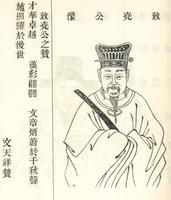 致堯公像
致堯公之贊
才華卓越 漢彩翩翩 文章炳蔚於千秋聲
施照耀於後世
文天祥贊